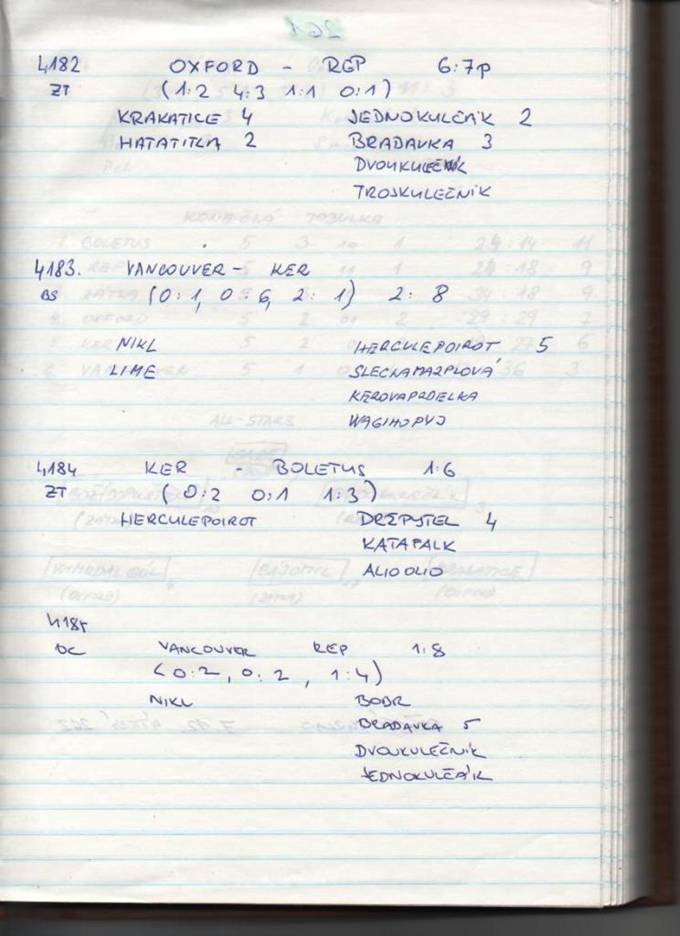 261
4182 OXFORD - REP 6:7p
ZT (1:2 4:3 1:1 0:1)
KRAKATICE 4 JEDNOKULEČÁK 2
HATATITLA 2 BRADAVKA 3
DVOUKULEČNÍK
TROJKULEČNÍK
4183. VANCOUVER - KER
BS (0:1, 0:6, 2:1) 2:8
NIKL HERCULEPOIROT 5
LIME SLECNAMARPLOVÁ
KEROVAPRDELKA
WAGIHOPVJ
4184 KER - BOLETUS 1:6
ZT (0:2 0:1 1:3)
HERCULEPOIROT DRŽPYTEL 4
KATAPALK
ALIOOLIO
4185
DC VANCOUVER REP 1:8
(0:2, 0:2, 1:4)
NIKL BODR
BRADAVKA 5
DVOUKULEČNÍK
JEDNOKULEČÁK